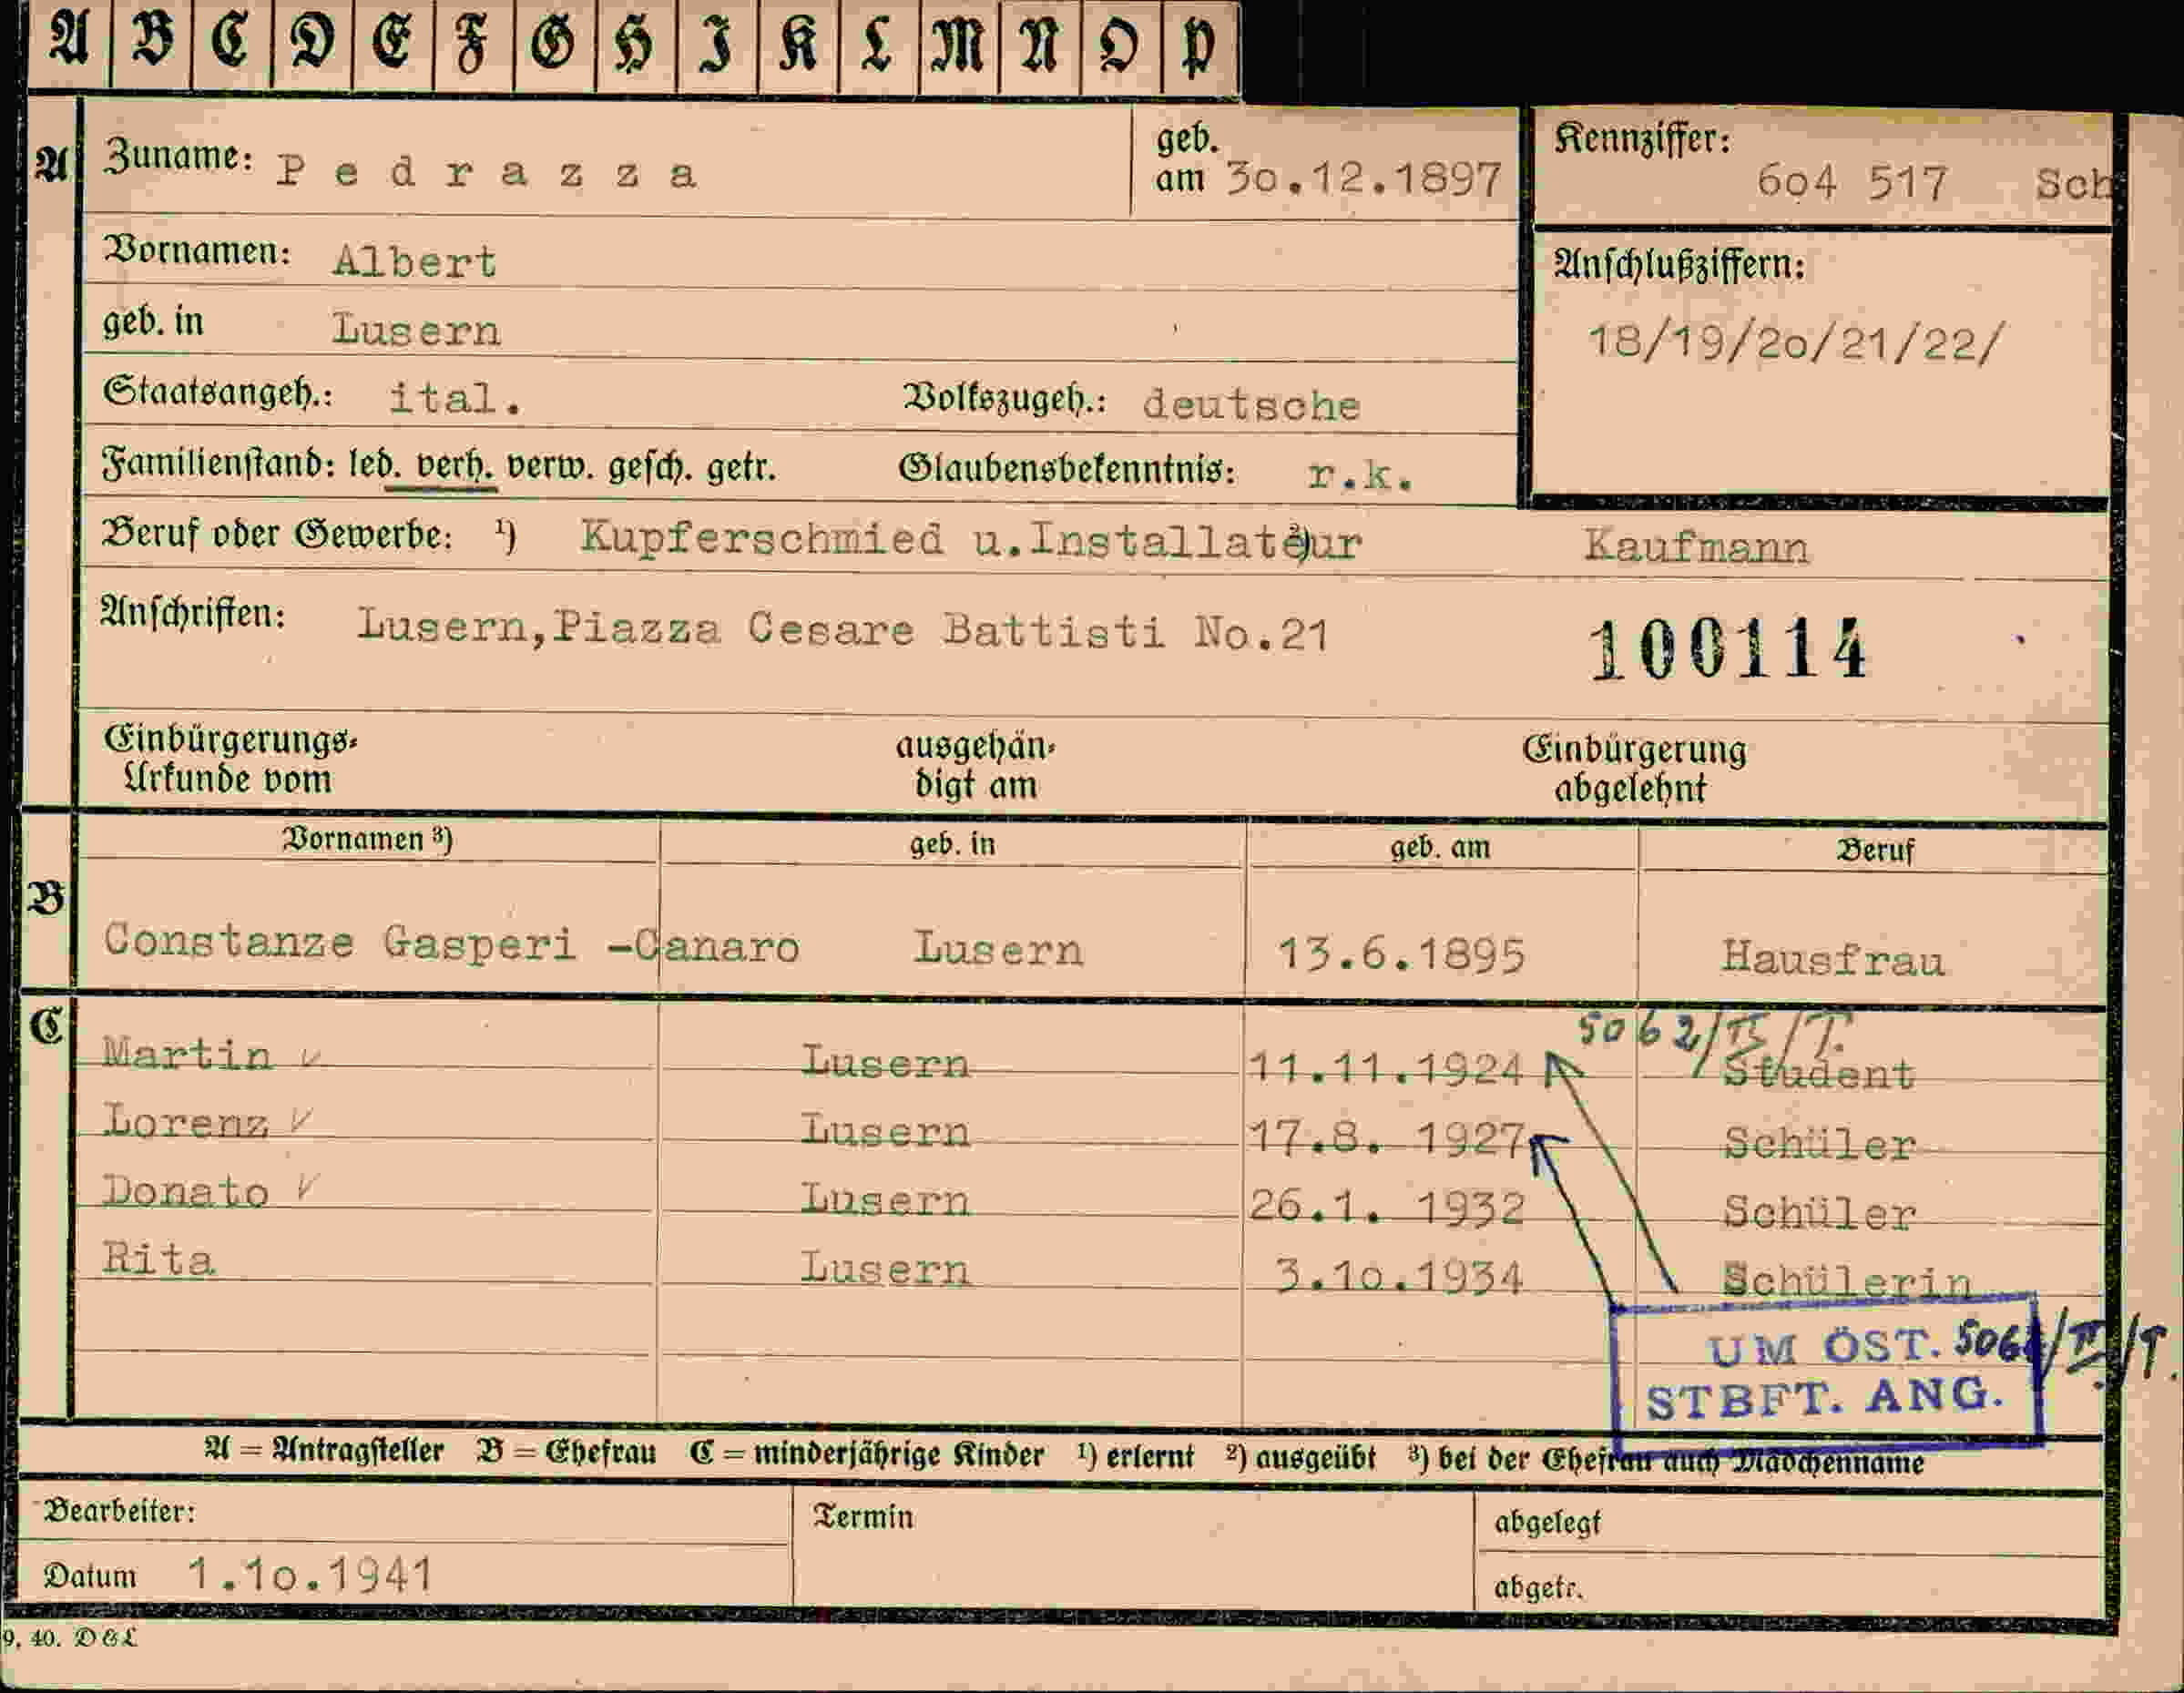 A B C D E F G H I K L M N O P
A Zuname: Pedrazza geb. am 30.12.1897 Kennziffer: 604 517 Sch
Vornamen: Albert Anschlußziffern:
geb. in Lusern 18/19/20/21/22/
Staatsangeh.: ital. Volkszugeh.: deutsche
Familienstand: led. verh. verw. gesch. getr. Glaubensbekenntnis: r.k.
Beruf oder Gewerbe: ¹) Kupferschmied u.Installateur Kaufmann
Anschriften: Lusern,Piazza Cesare Battisti No.21 100114
Einbürgerungs- ausgehän- Einbürgerung
Urkunde vom digt am abgelehnt
Vornamen ³) geb. in geb. am Beruf
B
Constanze Gasperi -Canaro Lusern 13.6.1895 Hausfrau
C 5062/II/T.
Martin Lusern 11.11.1924 Student
Lorenz Lusern 17.8. 1927 Schüler
Donato Lusern 26.1. 1932 Schüler
Rita Lusern 3.10.1934 Schülerin
UM ÖST.
STBFT. ANG.
A = Antragsteller B = Ehefrau C = minderjährige Kinder ¹) erlernt ²) ausgeübt ³) bei der Ehefrau auch Mädchenname
Bearbeiter: Termin abgelegt
Datum 1.10.1941 abgetr.
9. 40. D&L